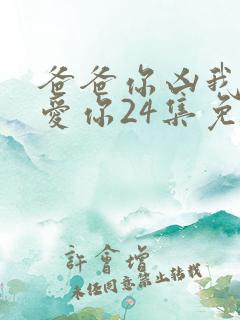 爸爸你凶我
愛你24集免
許會增
未经同意禁止转载